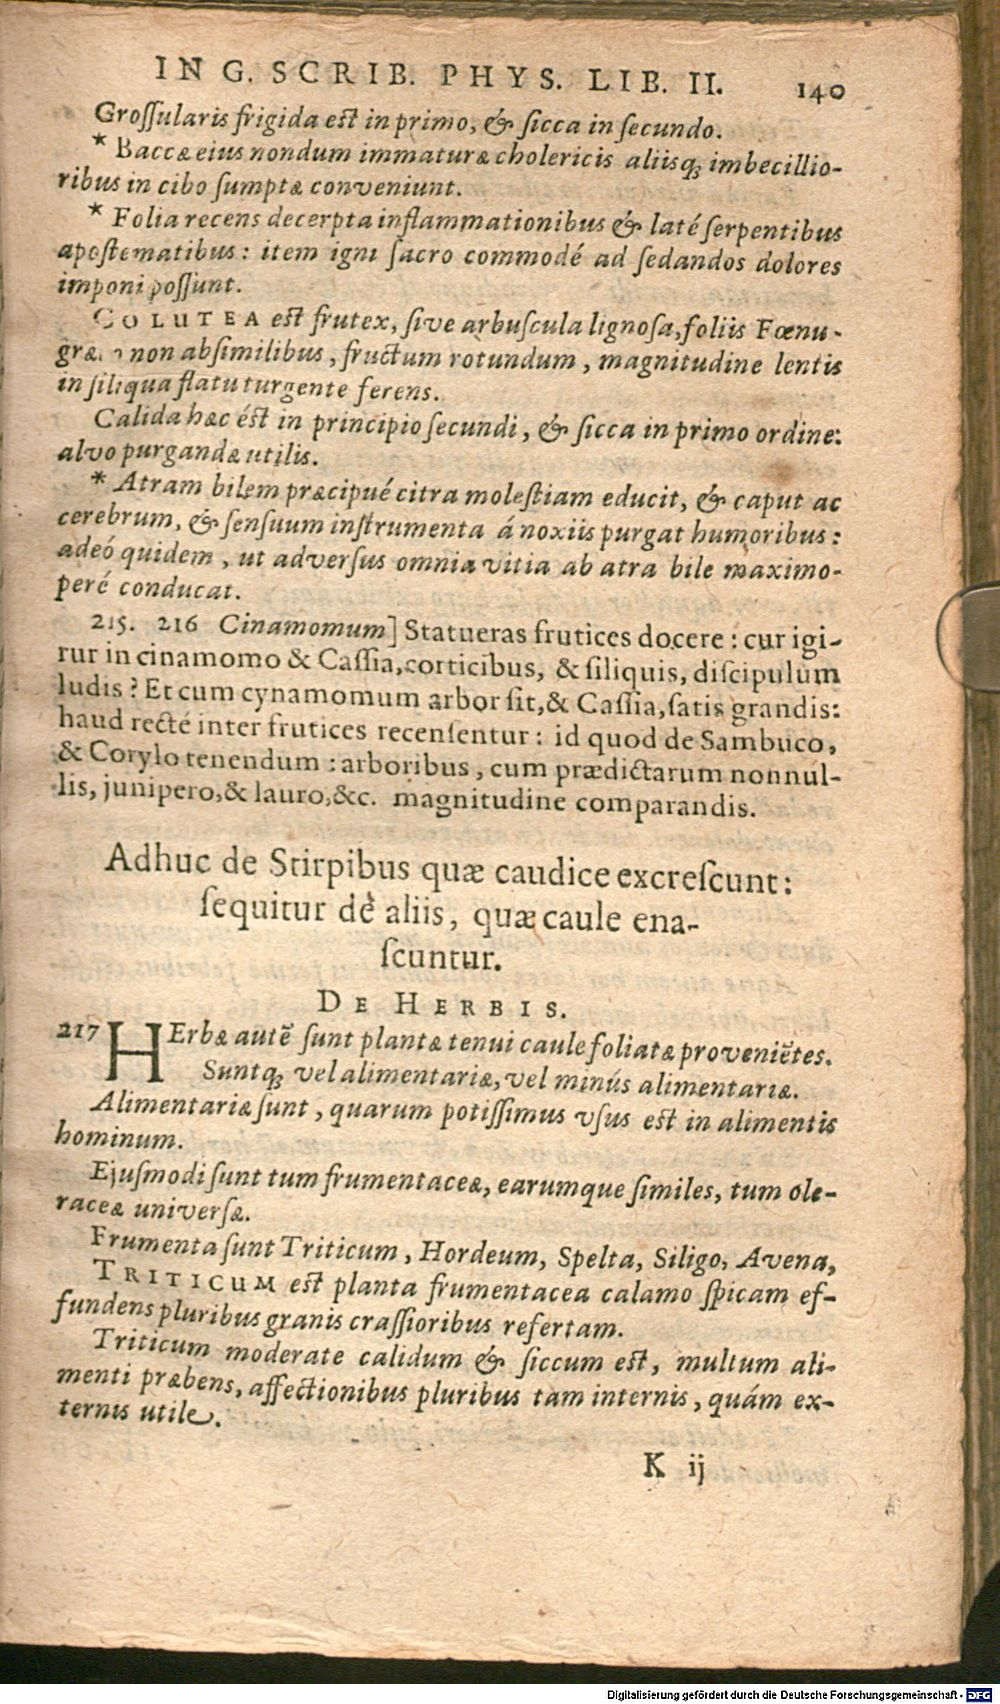 IN G. SCRIB. PHYS. LIB. II. 140
Groſſularis frigida est in primo, & ſicca in ſecundo.
* Baccæ eius nondum immaturæ cholericis aliisq; imbecillio-
ribus in cibo ſumptæ conveniunt.
* Folia recens decerpta inflammationibus & laté ſerpentibus
apostematibus: item igni ſacro commodé ad ſedandos dolores
imponi poſſunt.
COLUTEA est frutex, ſive arbuſcula lignoſa, foliis Fœnu-
græ non abſimilibus, fructum rotundum, magnitudine lentis
in ſiliqua flatu turgente ferens.
Calida hæc ést in principio ſecundi, & ſicca in primo ordine:
alvo purgandæ utilis.
* Atram bilem præcipué citra molestiam educit, & caput ac
cerebrum, & ſenſuum instrumenta á noxiis purgat humoribus:
adeó quidem, ut adverſus omnia vitia ab atra bile maximo-
peré conducat.
215. 216 Cinamomum] Statueras frutices docere: cur igi-
tur in cinamomo & Caſſia, corticibus, & ſiliquis, diſcipulum
ludis? Et cum cynamomum arbor ſit, & Caſſia, ſatis grandis:
haud recté inter frutices recenſentur: id quod de Sambuco,
& Corylo tenendum: arboribus, cum prædictarum nonnul-
lis, junipero, & lauro, &c. magnitudine comparandis.
Adhuc de Stirpibus quæ caudice excreſcunt:
ſequitur dè aliis, quæ caule ena-
ſcuntur.
DE HERBIS.
217 HErbæ autē ſunt plantæ tenui caule foliatæ proveniētes.
Suntq; vel alimentariæ, vel minús alimentariæ.
Alimentariæ ſunt, quarum potiſſimus vſus est in alimentis
hominum.
Ejuſmodi ſunt tum frumentaceæ, earumque ſimiles, tum ole-
raceæ univerſæ.
Frumenta ſunt Triticum, Hordeum, Spelta, Siligo, Avena,
TRITICUM est planta frumentacea calamo ſpicam ef-
fundens pluribus granis craſſioribus refertam.
Triticum moderate calidum & ſiccum est, multum ali-
menti præbens, affectionibus pluribus tam internis, quám ex-
ternis utile.
K ij
Digitalisierung gefördert durch die Deutsche Forschungsgemeinschaft - DFG